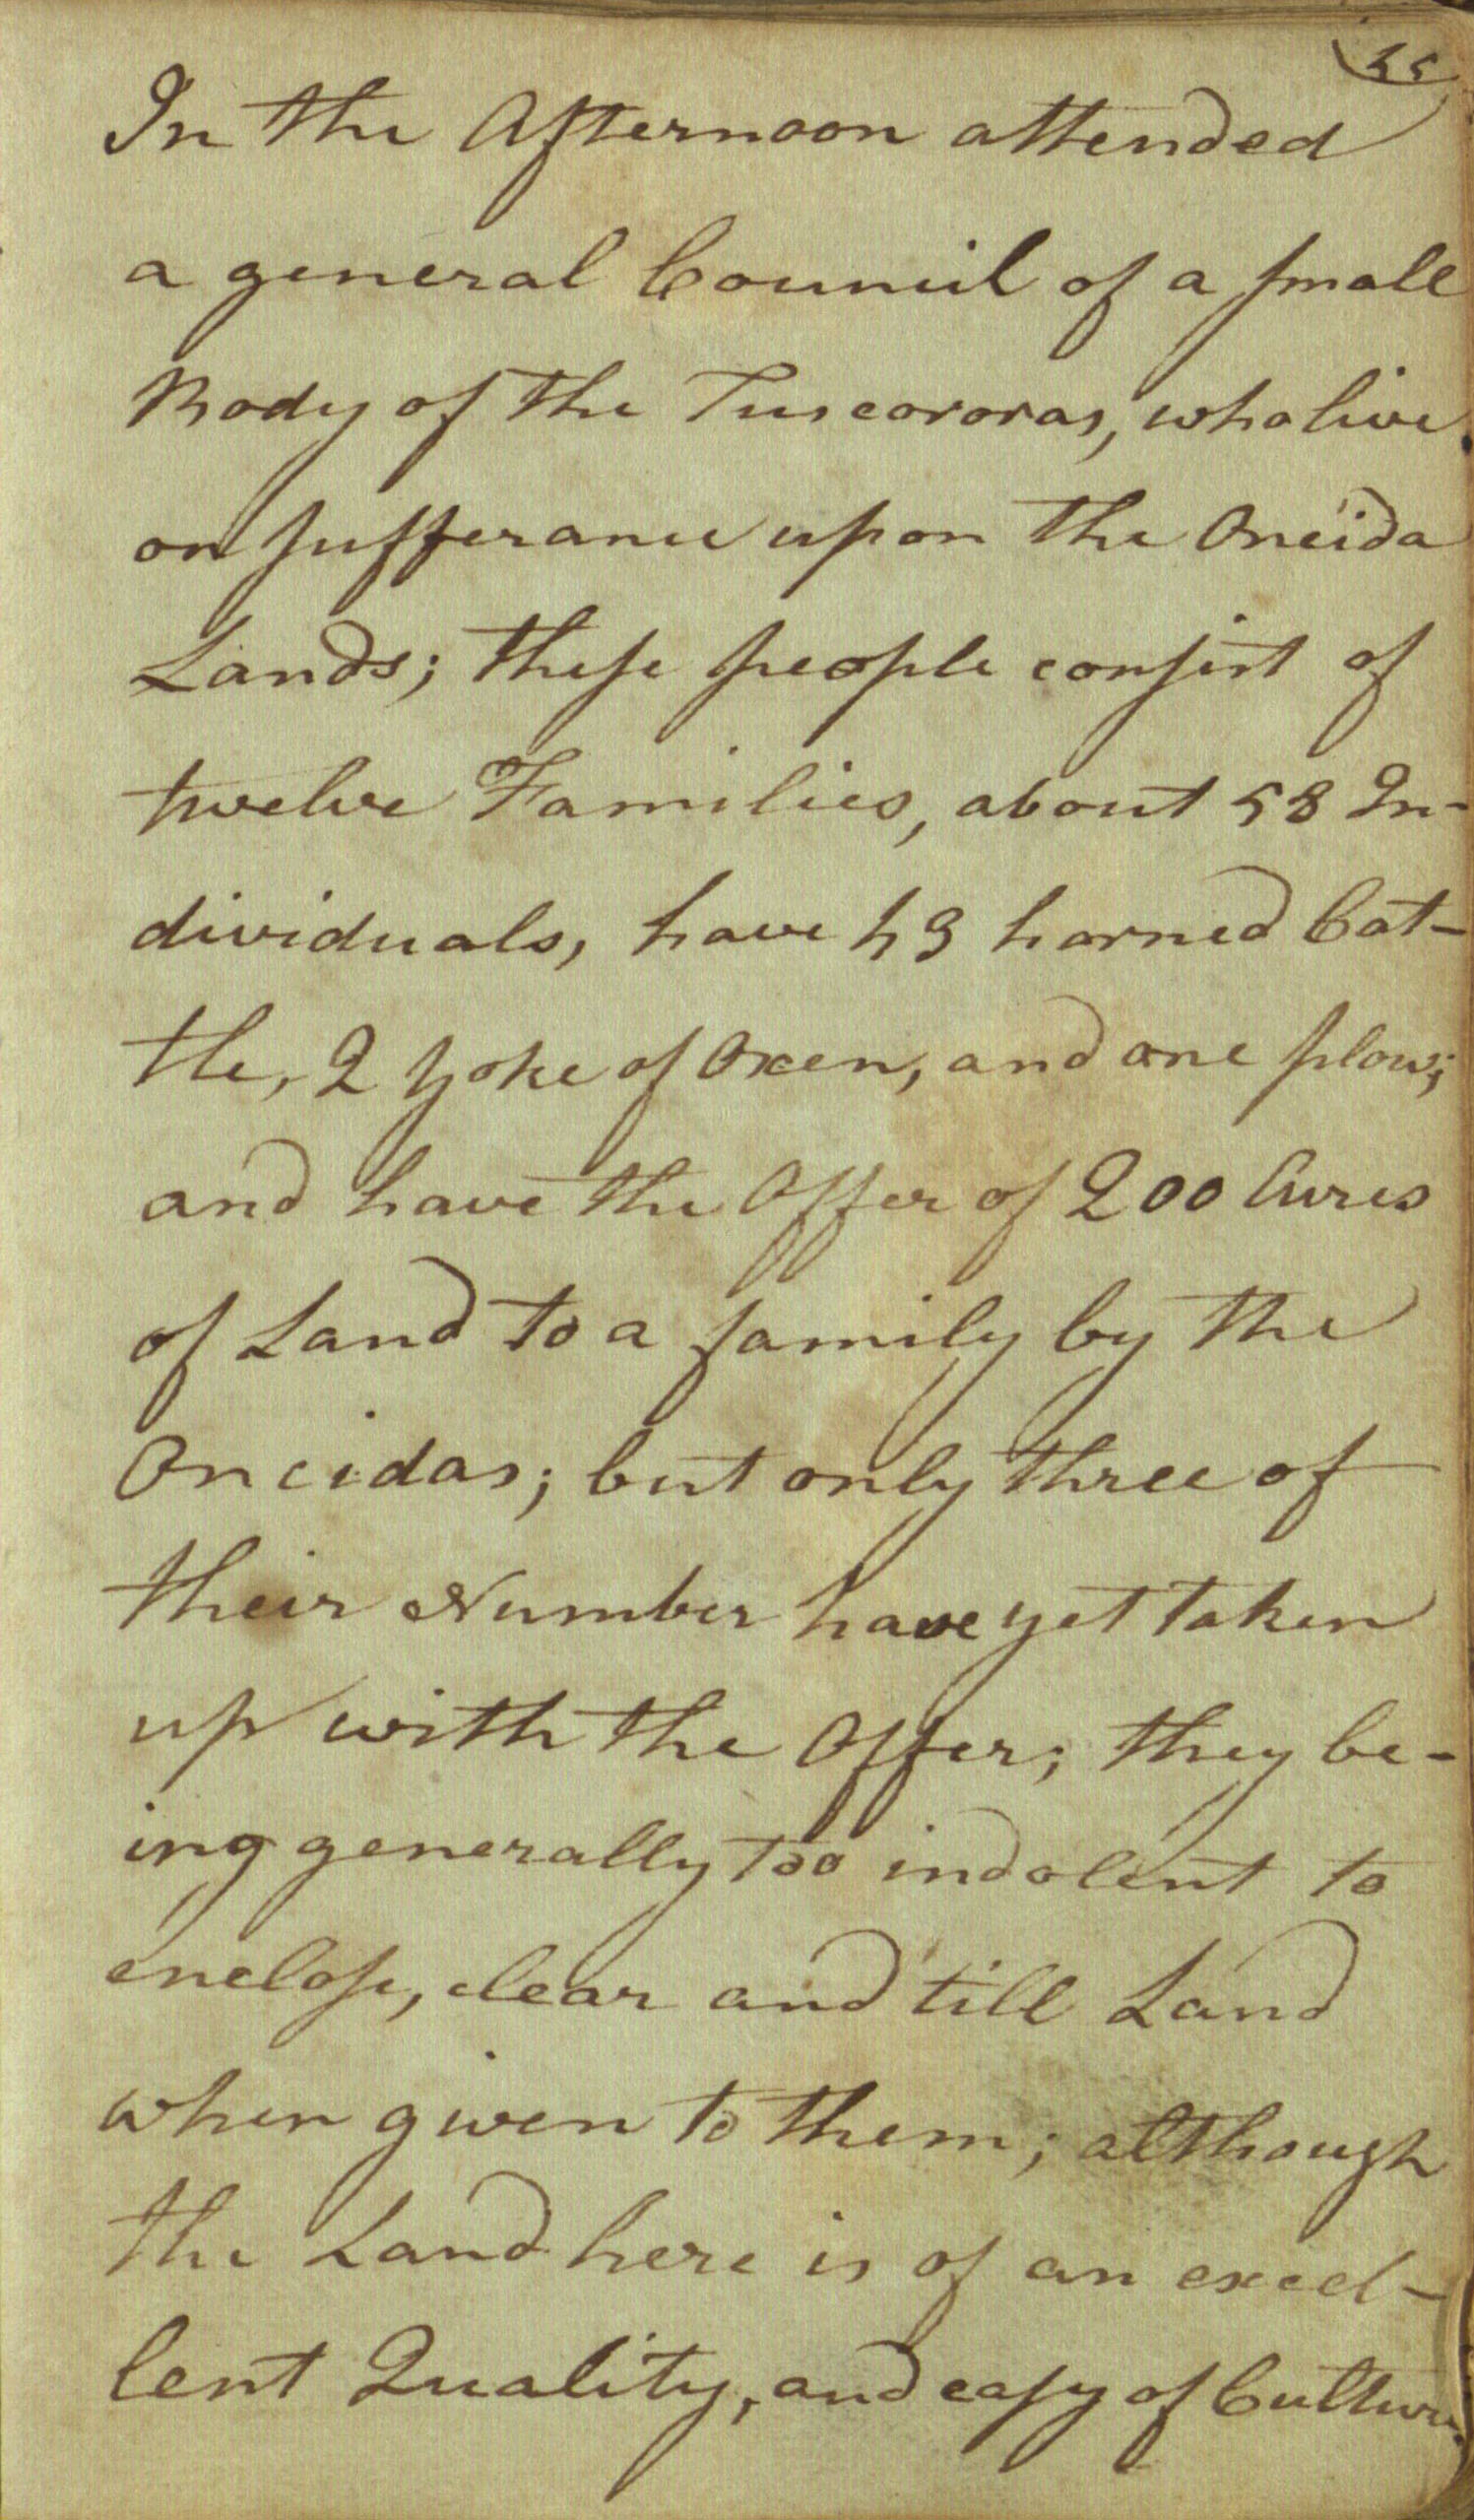 45
In the Afternoon attended
a general Council of a small
Body of the Tuscororas, who live
on sufferance upon the Oneida
Lands; these people consist of
twelve Families, about 58 In-
dividuals, have 43 horned Cat-
tle, 2 Yoke of Oxen, and one plow;
and have the Offer of 200 Acres
of Land to a family by the
Oneidas; but only three of
their Number have yet taken
up with the Offer; they be-
ing generally too indolent to
enclose, clear and till Land
when given to them; although
the Land here is of an excel-
lent Quality, and easy of Culture.